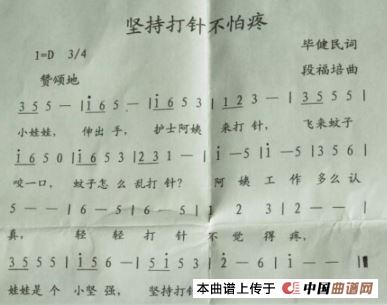 坚持打针不怕疼
1=D 3/4
毕健民词
赞颂地
段福培曲
3 5 5 — | i 6 5 — | i 6 5 3 | 1 2 3 — | 3 5 5 5 |
小娃娃， 伸出手， 护士阿姨 来打针， 飞来蚊子
i 6 5 0 | i 6 5 3 | 2 3 1 — | i — 5 | i — 5 | 3 5 6 |
咬一口， 蚊子怎么乱打针？ 阿姨工作多么认
5 — — | 6 — 5 | 6 — 5 | 1 2 3 | 2 — — |
真， 轻轻打针不觉得疼，
3 5 5 5 | i 6 5 — | 5 i 5 3 |
娃娃是个小坚强， 坚持打针
本曲谱上传于 中国曲谱网